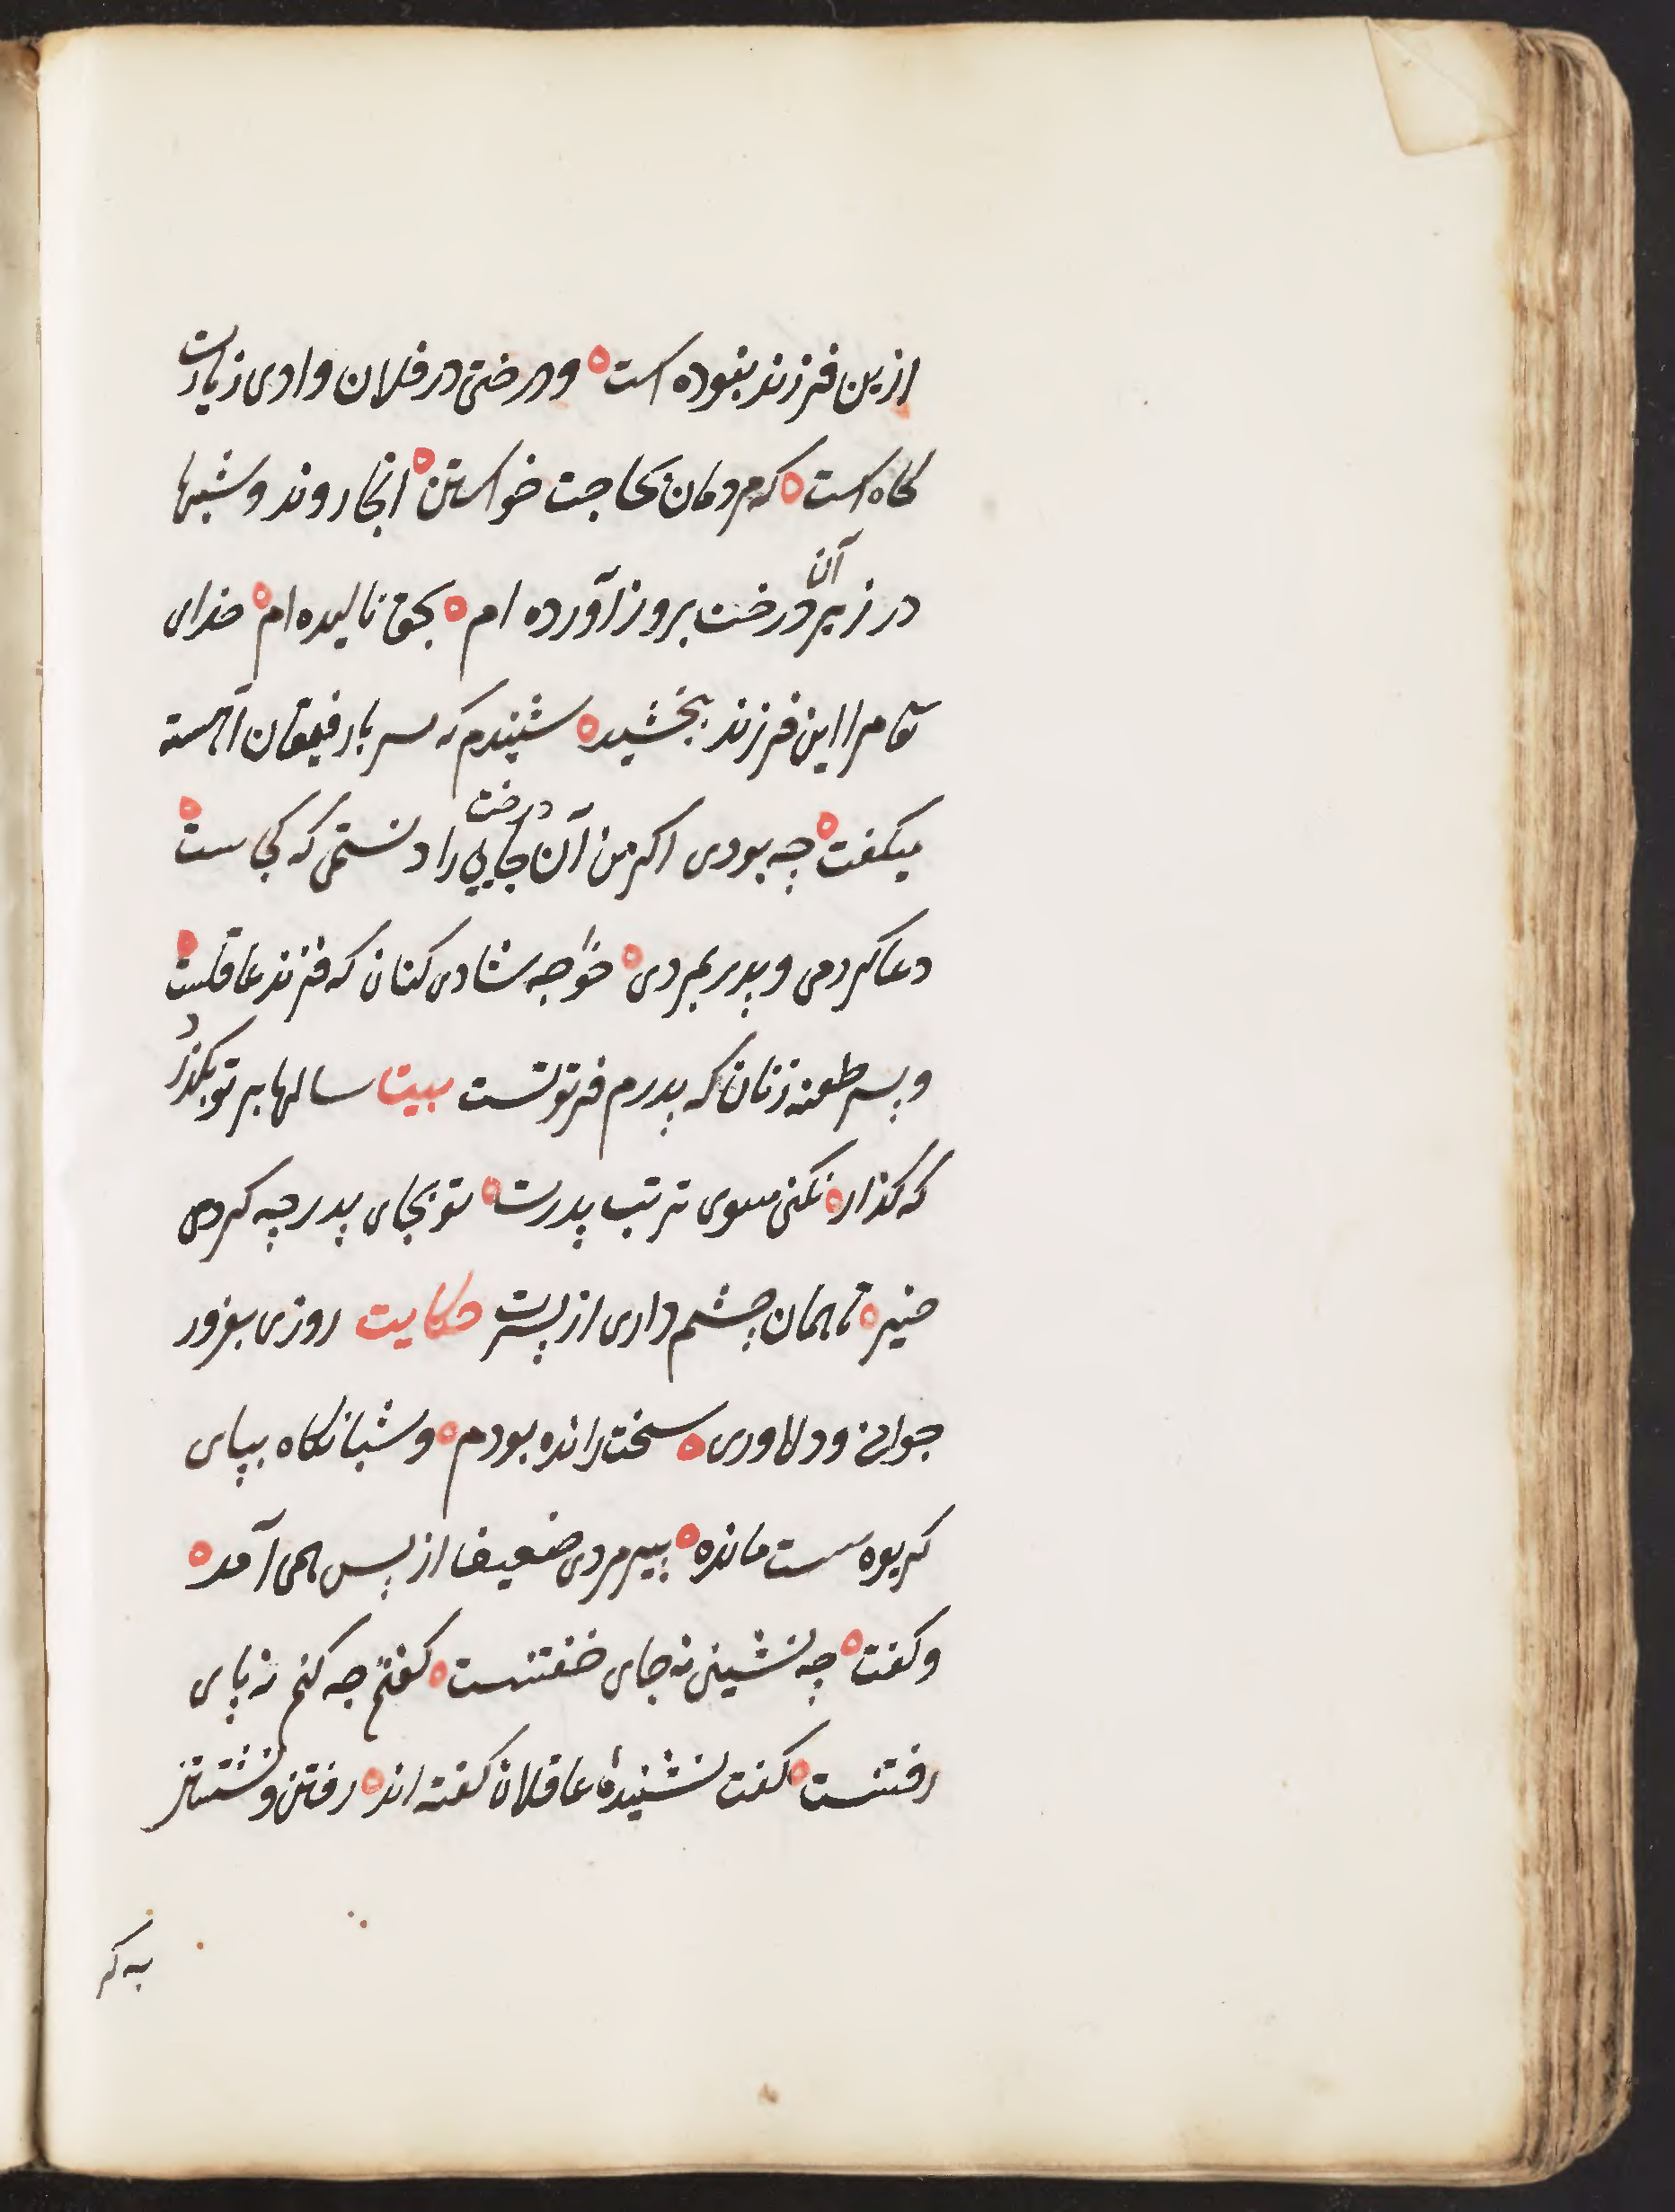 ازین فرزند نبوده است ه ودرختی در فلان وادی زیارت
کاه است ه که مردمان بحاجت خواستن ه انجا روند وشبها
در زیر آن درخت بروز آورده ام ه بحق نالیده ام ه خدای
تعا مرا این فرزند بخشیده شنیدم که پسر با رفیقان آهسته
میکفت ه چه بودی اکر من آن درخت جایی را دنستمی که کجاست ه
دعا کردمی وپدر بمردی ه خواجه شادی کنان که فرزند عاقلست ه
وپسر طعنه زنان که پدرم فرتوتست بیت سالها بر تو بکذرد
که کذار ه نکنی سوی تربت پدرت ه تو بجای پدر چه کردی
خیر ه تا همان چشم داری از پسرت حکایت روزی بغرور
جوانی ودلاوری ه سخت رانده بودم ه وشبانکاه بپای
کریوه ست مانده ه پیرمردی ضعیف از پس همی آمد ه
وکفت ه چه نشینی نه جای خفتنست ه کفتم چه کنم نه پای
رفتنست ه کفت نشنیدهٔ عاقلان کفته اند ه رفتن ونشستن
به که